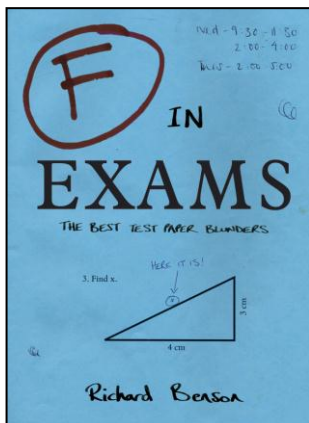 Wed - 9:30 - 11:30
2:00 - 4:00
2:00 5:00
F
IN
EXAMS
THE BEST TEST PAPER BLUNDERS
HERE IT IS!
3. Find x.
x
3 cm
4 cm
Richard Benson